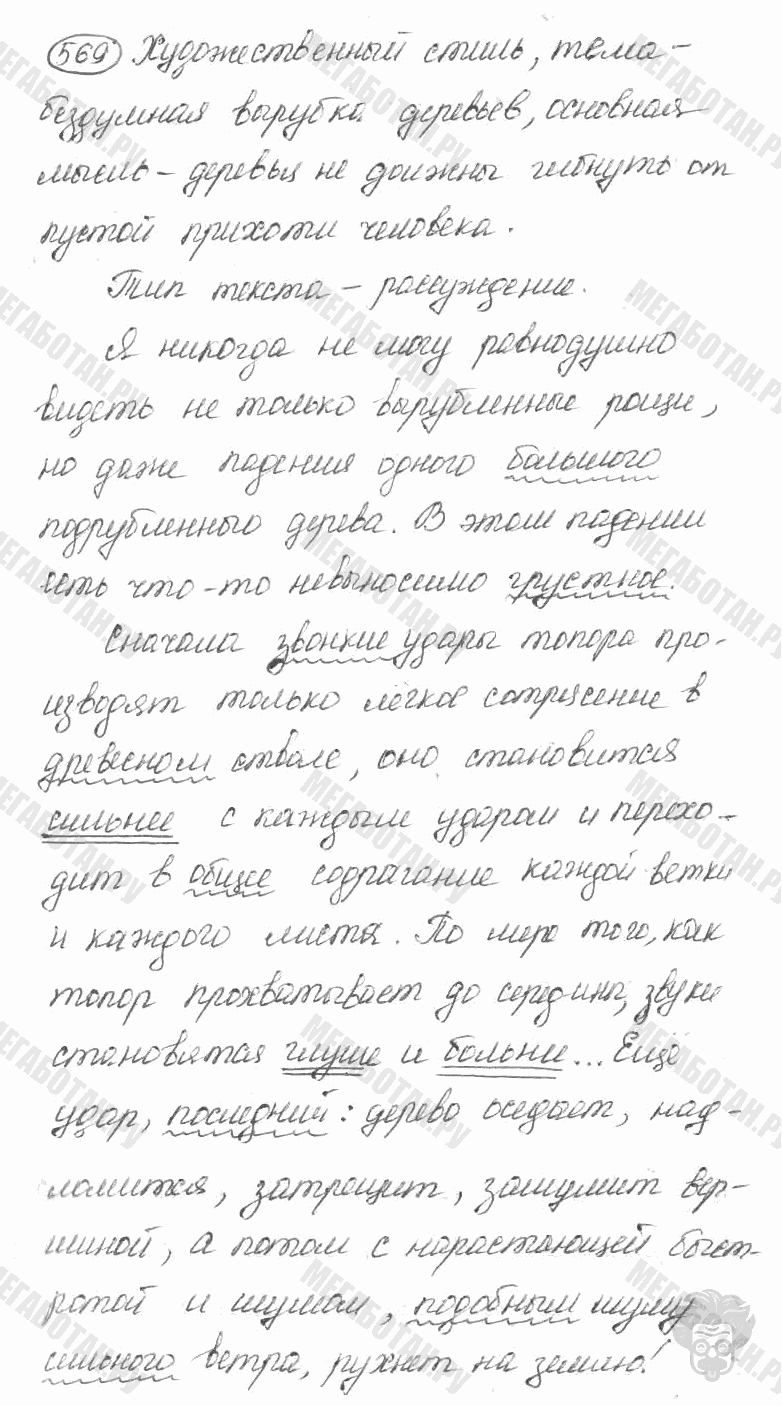 569 Художественный стиль, тема –
бездумная вырубка деревьев, основная
мысль – деревья не должны гибнуть от
пустой прихоти человека.
Тип текста – рассуждение.
Я никогда не могу равнодушно
видеть не только вырубленные рощи,
но даже падения одного большого
подрубленного дерева. В этом падении
есть что-то невыносимо грустное.
Сначала звонкие удары топора про-
изводят только лёгкое сотрясение в
древесном стволе, оно становится
сильнее с каждым ударом и перехо-
дит в общее содрагание каждой ветки
и каждого листа. По мере того, как
топор прохватывает до середины, звуки
становятся глуше и больнее... Ещё
удар, последний: дерево оседает, над-
ломится, затрещит, зашумит вер-
шиной, а потом с нарастающей быст-
ротой и шумом, подобным шуму
сильного ветра, рухнет на землю!
МЕГАБОТАН.РУ